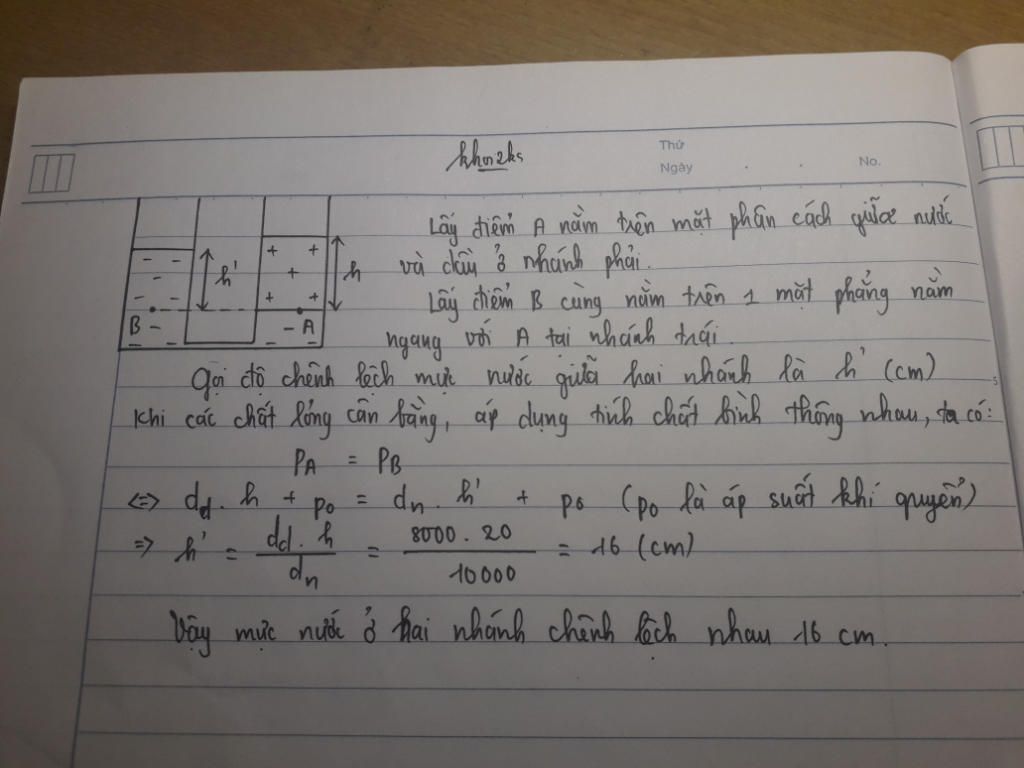 khn2ks
Thứ
Ngày . . No.
Lấy điểm A nằm trên mặt phân cách giữa nước
và dầu ở nhánh phải.
h'
h
Lấy điểm B cùng nằm trên 1 mặt phẳng nằm
B
A
ngang với A tại nhánh trái.
Gọi độ chênh lệch mực nước giữa hai nhánh là h' (cm)
Khi các chất lỏng cân bằng, áp dụng tính chất bình thông nhau, ta có:
PA = PB
<=> dd. h + po = dn. h' + po (po là áp suất khí quyển)
=> h' = dd. h / dn = 8000. 20 / 10000 = 16 (cm)
Vậy mực nước ở hai nhánh chênh lệch nhau 16 cm.